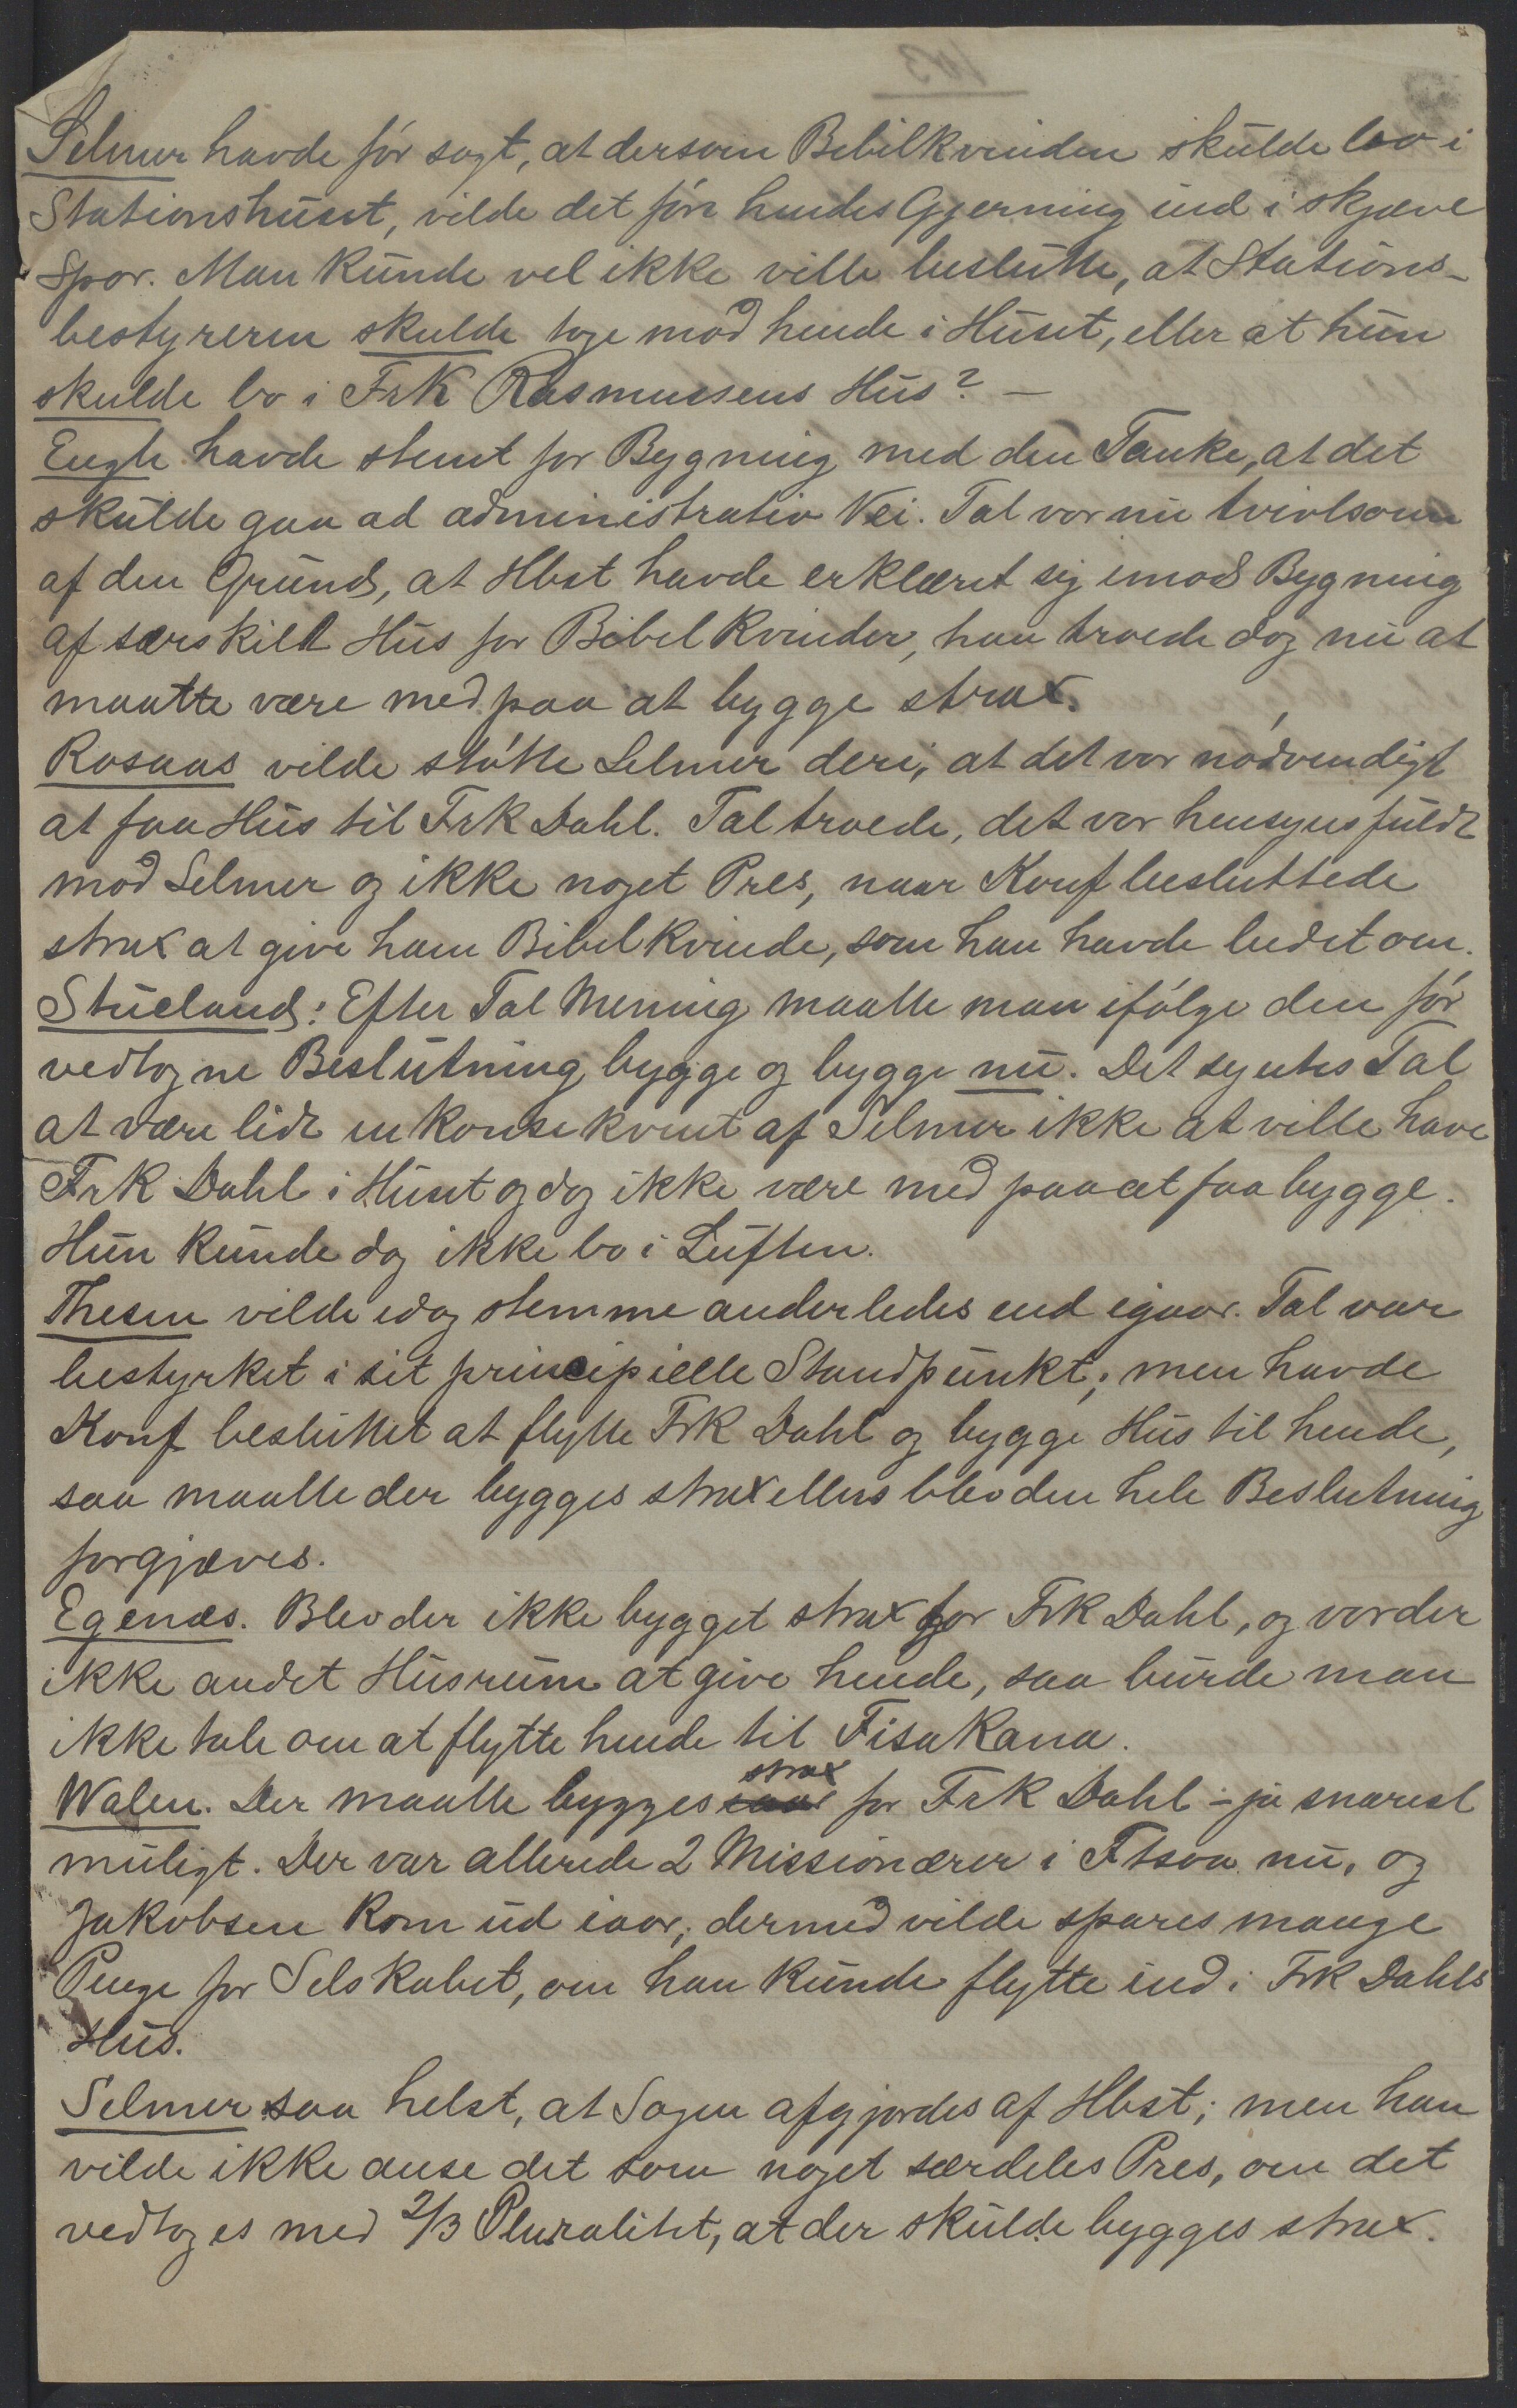 Selmer havde før sagt, at dersom Bebilkvinden skulde bo i
Stationshuset, vilde det føre hendes Gjerning ind i skjæve
Spor. Man kunde vel ikke ville beslutte, at Stations-
bestyreren skulde tage mod hende i Huset, eller at hun
skulde bo i Frk Rasmussens Hus? —
Engh havde stemt for Bygning med den Tanke, at det
skulde gaa ad administrativ Vei. Tal var nu tvivlsom
af den Grund, at Hbst havde erklæret sig imod Bygning
af særskilt Hus for Bibelkvinder, han troede dog nu at
maatte være med paa at bygge strax.
Rosaas vilde støtte Selmer deri, at det var nødvendigt
at faa Hus til Frk Dahl. Tal troede, det var hensynsfuldt
mod Selmer og ikke noget Pres, naar Konf besluttede
strax at give ham Bibelkvinde, som han havde bedet om.
Stueland: Efter Tal Mening maatte man ifølge den før
vedtagne Beslutning bygge og bygge nu. Det syntes Tal
at være lidt inkonsekvent af Selmer ikke at ville have
Frk Dahl i Huset og dog ikke være med paa at faa bygge.
Hun kunde dog ikke bo i Luften.
Thesen vilde idag stemme anderledes end igaar. Tal var
bestyrket i sit principielle Standpunkt; men havde
Konf besluttet at flytte Frk Dahl og bygge Hus til hende,
saa maatte der bygges strax ellers blev den hele Beslutning
forgjæves.
Egenæs. Blev der ikke bygget strax for Frk Dahl, og var der
ikke andet Husrum at give hende, saa burde man
ikke tale om at flytte hende til Fisakana.
Walen. Der maatte bygges strax for Frk Dahl – ja snarest
muligt. Der var allerede 2 Missionærer i Ftsoa nu, og
Jakobsen kom ud iaar; dermed vilde spares mange
Penge for Selskabet, om han kunde flytte ind i Frk Dahls
Hus.
Selmer saa helst, at Sagen afgjordes af Hbst; men han
vilde ikke anse det som noget særdeles Pres, om det
vedtoges med 2/3 Pluralitet, at der skulde bygges strax.